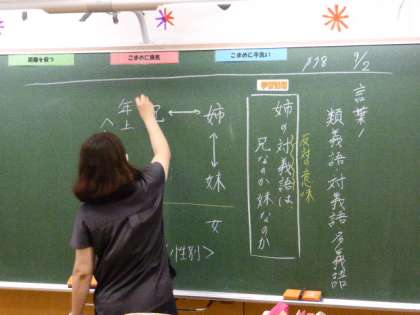 距離を保つ
こまめに換気
こまめに手洗い
9/2
P28
言葉ノ
類義語・対義語・多義語
学習課題
反対の意味
姉の対義語は、
兄なのか妹なのか
姉 ↔ 兄
↕
妹
年上
女
性別>